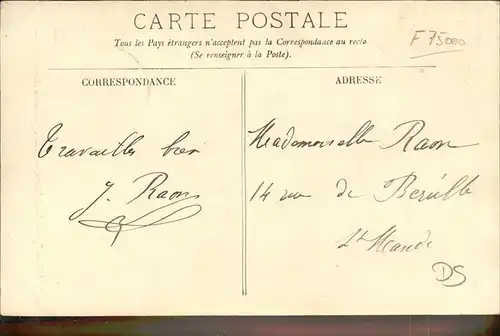 CARTE POSTALE
Tous les Pays étrangers n'acceptent pas la Correspondance au recto
(Se renseigner à la Poste).
F 75000
CORRESPONDANCE
ADRESSE
Travailles bien
J. Raon
Mademoiselle Raon
14 rue de Bérulle
St Mandé
DS